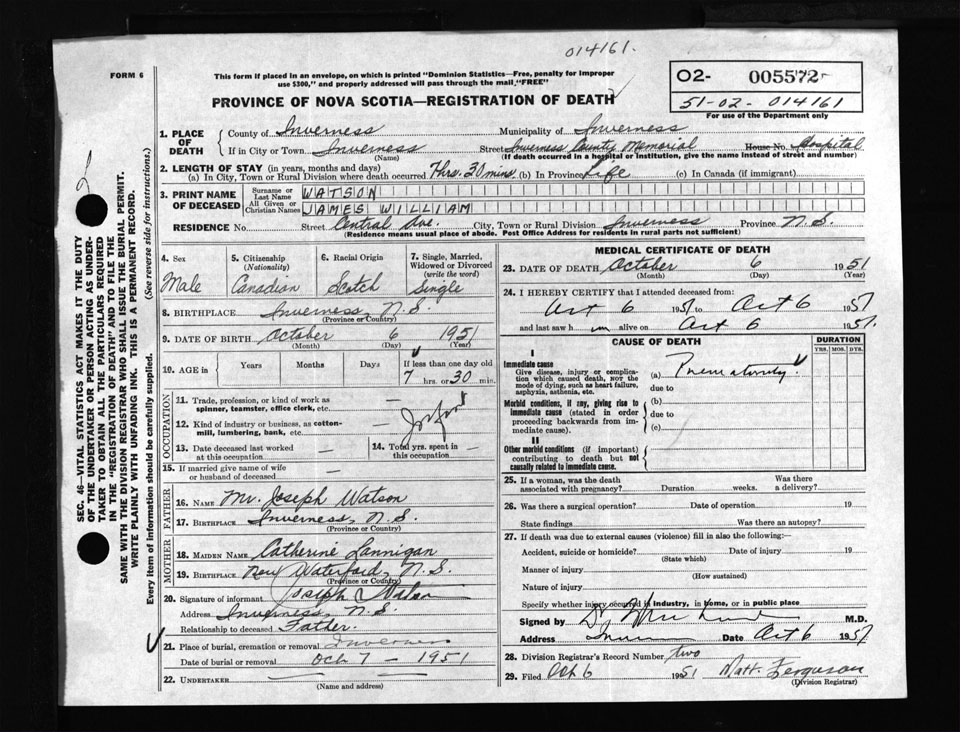 014161.
FORM 6
This form if placed in an envelope, on which is printed "Dominion Statistics—Free, penalty for improper
use $300," and properly addressed will pass through the mail "FREE"
O2- 005572
51-02-014161
For use of the Department only
PROVINCE OF NOVA SCOTIA—REGISTRATION OF DEATH
1. PLACE OF DEATH
County of Inverness Municipality of Inverness
If in City or Town Inverness Street Inverness County Memorial House No. Hospital
(Name) (If death occurred in a hospital or institution, give the name instead of street and number)
2. LENGTH OF STAY (in years, months and days)
(a) In City, Town or Rural Division where death occurred 7 hrs. 30 mins. (b) In Province Life (c) In Canada (if immigrant)
3. PRINT NAME OF DECEASED
Surname or Last Name WATSON
All Given or Christian Names JAMES WILLIAM
RESIDENCE No. Street Central Ave City, Town or Rural Division Inverness Province N.S.
(Residence means usual place of abode. Post Office Address for residents in rural parts not sufficient)
4. Sex Male
5. Citizenship (Nationality) Canadian
6. Racial Origin Scotch
7. Single, Married, Widowed or Divorced (write the word) Single
8. BIRTHPLACE Inverness, N.S.
(Province or Country)
9. DATE OF BIRTH October 6 1951
(Month) (Day) (Year)
10. AGE in Years Months Days If less than one day old
7 hrs. or 30 min.
OCCUPATION
11. Trade, profession, or kind of work as spinner, teamster, office clerk, etc. —
12. Kind of industry or business, as cotton-mill, lumbering, bank, etc. — Infant
13. Date deceased last worked at this occupation —
14. Total yrs. spent in this occupation —
15. If married give name of wife or husband of deceased —
FATHER
16. NAME Mr. Joseph Watson
17. BIRTHPLACE Inverness, N.S.
(Province or Country)
MOTHER
18. MAIDEN NAME Catherine Lannigan
19. BIRTHPLACE New Waterford, N.S.
(Province or Country)
20. Signature of informant Joseph Watson
Address Inverness, N.S.
Relationship to deceased Father.
21. Place of burial, cremation or removal Inverness
Date of burial or removal Oct 7 - 1951
22. UNDERTAKER
(Name and address)
MEDICAL CERTIFICATE OF DEATH
23. DATE OF DEATH October 6 1951
(Month) (Day) (Year)
24. I HEREBY CERTIFY that I attended deceased from:
Oct 6 1951 to Oct 6 1951
and last saw him alive on Oct 6 1951.
CAUSE OF DEATH
DURATION
YRS. MOS. DYS.
I
Immediate cause
Give disease, injury or complication which caused death, NOT the mode of dying, such as heart failure, asphyxia, asthenia, etc.
(a) Prematurity
due to
Morbid conditions, if any, giving rise to immediate cause (stated in order proceeding backwards from immediate cause).
(b)
due to
(c)
II
Other morbid conditions (if important) contributing to death but not causally related to immediate cause.
25. If a woman, was the death associated with pregnancy? Duration weeks. Was there a delivery?
26. Was there a surgical operation? Date of operation 19
State findings Was there an autopsy?
27. If death was due to external causes (violence) fill in also the following:—
Accident, suicide or homicide? Date of injury 19
(State which)
Manner of injury
(How sustained)
Nature of injury
Specify whether injury occurred in industry, in home, or in public place
Signed by M.D.
Address Date Oct 6 1951
28. Division Registrar's Record Number two
29. Filed Oct 6 1951 Matt. Ferguson
(Division Registrar)
SEC. 46—VITAL STATISTICS ACT MAKES IT THE DUTY
OF THE UNDERTAKER OR PERSON ACTING AS UNDER-
TAKER TO OBTAIN ALL THE PARTICULARS REQUIRED
IN THE "REGISTRATION OF DEATH" AND TO FILE THE
SAME WITH THE DIVISION REGISTRAR WHO SHALL ISSUE THE BURIAL PERMIT.
WRITE PLAINLY WITH UNFADING INK. THIS IS A PERMANENT RECORD.
Every item of information should be carefully supplied. (See reverse side for instructions.)